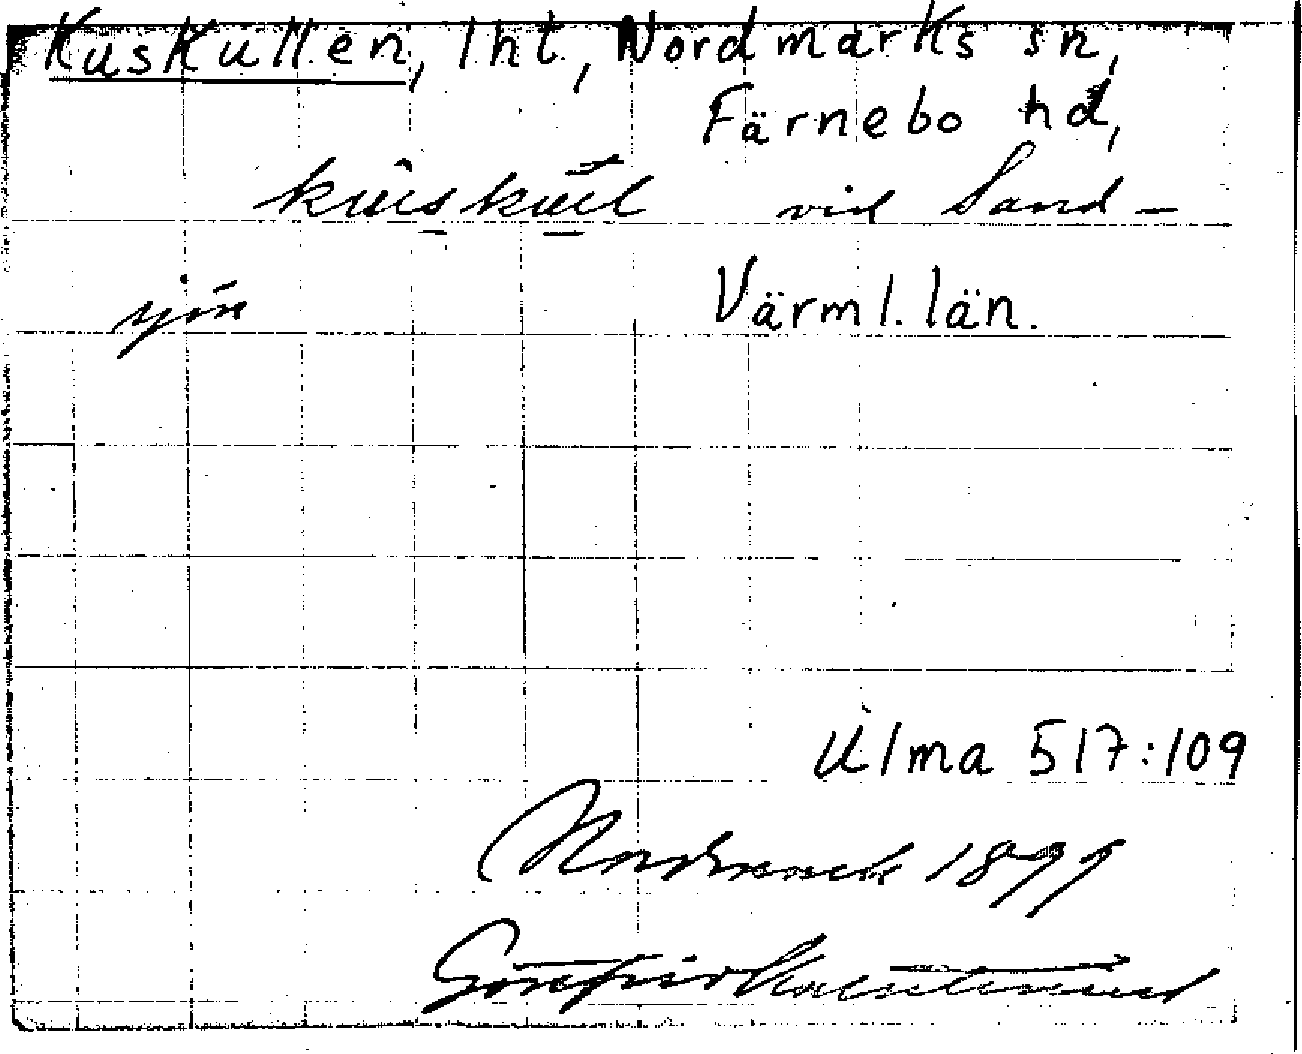 Kuskullen, lht, Nordmarks sn,
Färnebo hd,
vid Sand-
sjön
Värml. län.
Ulma 517:109
Nordmark 1899
Gottfrid Kallstenius